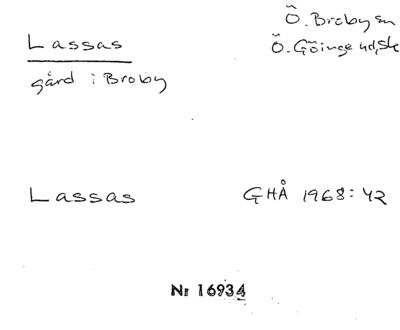 Lassas
Ö. Broby sn
Ö. Göinge hd, Sk
gård i Broby
Lassas
GHÅ 1968:42
Nr 16934